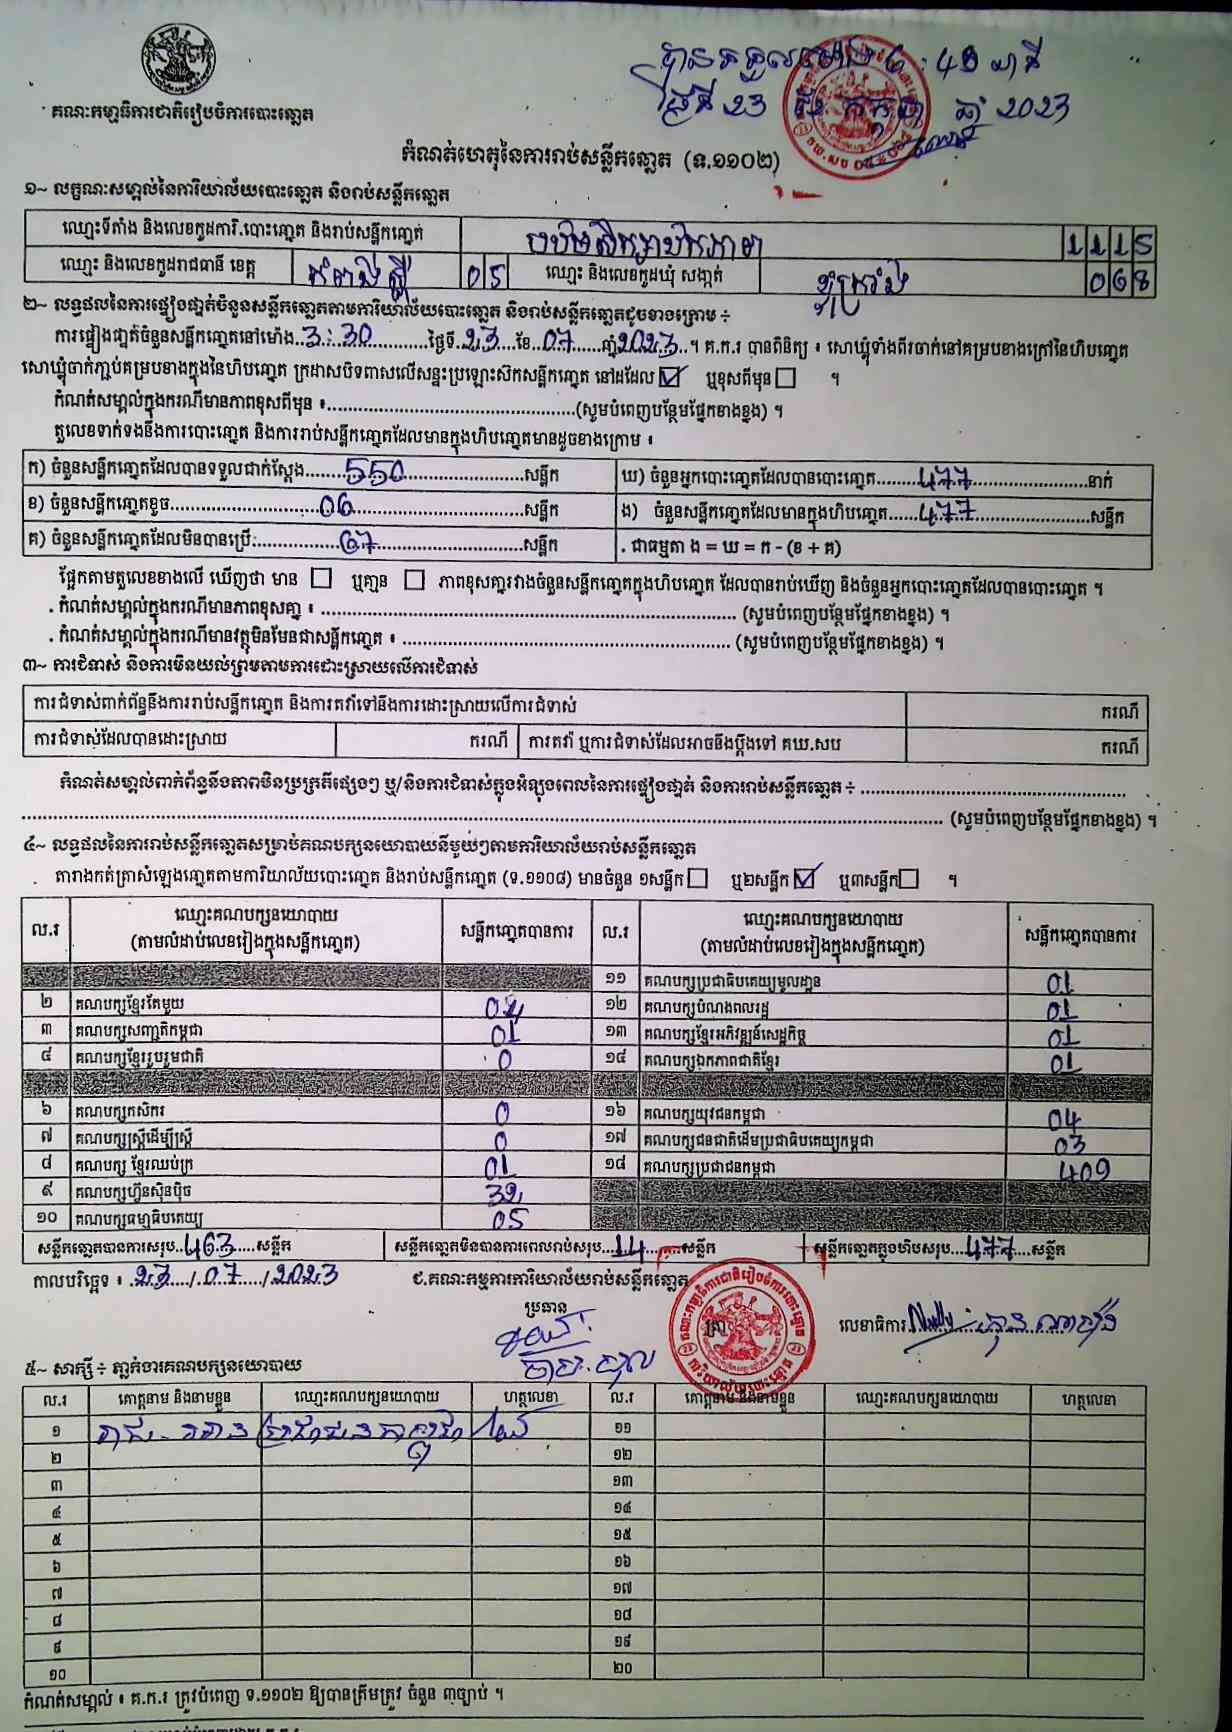 គណៈកម្មាធិការជាតិរៀបចំការបោះឆ្នោត
បានទទួលម៉ោង 6 : 48 នាទី
ថ្ងៃទី 23 ខែ កក្កដា ឆ្នាំ 2023
កំណត់ហេតុនៃការរាប់សន្លឹកឆ្នោត (ទ.១១០២)
១~ លក្ខណៈសម្គាល់នៃការិយាល័យបោះឆ្នោត និងរាប់សន្លឹកឆ្នោត
ឈ្មោះទីតាំង និងលេខកូដការិ.បោះឆ្នោត និងរាប់សន្លឹកឆ្នោត 1115
ឈ្មោះ និងលេខកូដរាជធានី ខេត្ត កំពង់ស្ពឺ 05 ឈ្មោះ និងលេខកូដឃុំ សង្កាត់ 068
២~ លទ្ធផលនៃការផ្ទៀងផ្ទាត់ចំនួនសន្លឹកឆ្នោតតាមការិយាល័យបោះឆ្នោត និងរាប់សន្លឹកឆ្នោតដូចខាងក្រោម ÷
ការផ្ទៀងផ្ទាត់ចំនួនសន្លឹកឆ្នោតនៅម៉ោង..3:30..........ថ្ងៃទី..23....ខែ..07......ឆ្នាំ2023..។ គ.ក.រ បានពិនិត្យ ៖ សោឃ្លុំទាំងពីរចាក់នៅគម្របខាងក្រៅនៃហិបឆ្នោត
សោឃ្លុំចាក់ភ្ជាប់គម្របខាងក្នុងនៃហិបឆ្នោត ក្រដាសបិទពាសលើសន្ទះប្រឡោះស៊កសន្លឹកឆ្នោត នៅដដែល ☑ ឬខុសពីមុន ☐ ។
កំណត់សម្គាល់ក្នុងករណីមានភាពខុសពីមុន ៖................................(សូមបំពេញបន្ថែមផ្នែកខាងខ្នង) ។
តួលេខទាក់ទងនឹងការបោះឆ្នោត និងការរាប់សន្លឹកឆ្នោតដែលមានក្នុងហិបឆ្នោតមានដូចខាងក្រោម ៖
ក) ចំនួនសន្លឹកឆ្នោតដែលបានទទួលជាក់ស្តែង......550..........សន្លឹក ឃ) ចំនួនអ្នកបោះឆ្នោតដែលបានបោះឆ្នោត......477..........នាក់
ខ) ចំនួនសន្លឹកឆ្នោតខូច..........06..........សន្លឹក ង) ចំនួនសន្លឹកឆ្នោតដែលមានក្នុងហិបឆ្នោត......477..........សន្លឹក
គ) ចំនួនសន្លឹកឆ្នោតដែលមិនបានប្រើ..........67..........សន្លឹក . ជាធម្មតា ង = ឃ = ក - (ខ + គ)
ផ្អែកតាមតួលេខខាងលើ ឃើញថា មាន ☐ ឬគ្មាន ☐ ភាពខុសគ្នារវាងចំនួនសន្លឹកឆ្នោតក្នុងហិបឆ្នោត ដែលបានរាប់ឃើញ និងចំនួនអ្នកបោះឆ្នោតដែលបានបោះឆ្នោត ។
. កំណត់សម្គាល់ក្នុងករណីមានភាពខុសគ្នា ៖ ................................ (សូមបំពេញបន្ថែមផ្នែកខាងខ្នង) ។
. កំណត់សម្គាល់ក្នុងករណីមានវត្ថុមិនមែនជាសន្លឹកឆ្នោត ៖ ................................ (សូមបំពេញបន្ថែមផ្នែកខាងខ្នង) ។
៣~ ការជំទាស់ និងការមិនយល់ព្រមតាមការដោះស្រាយលើការជំទាស់
ការជំទាស់ពាក់ព័ន្ធនឹងការរាប់សន្លឹកឆ្នោត និងការតវ៉ាទៅនឹងការដោះស្រាយលើការជំទាស់ ករណី
ការជំទាស់ដែលបានដោះស្រាយ ករណី ការតវ៉ា ឬការជំទាស់ដែលអាចនឹងប្តឹងទៅ គឃ.សប ករណី
កំណត់សម្គាល់ពាក់ព័ន្ធនឹងភាពមិនប្រក្រតីផ្សេងៗ ឬ/និងការជំទាស់ក្នុងអំឡុងពេលនៃការផ្ទៀងផ្ទាត់ និងការរាប់សន្លឹកឆ្នោត ÷ ................................
................................ (សូមបំពេញបន្ថែមផ្នែកខាងខ្នង) ។
៤~ លទ្ធផលនៃការរាប់សន្លឹកឆ្នោតសម្រាប់គណបក្សនយោបាយនីមួយៗតាមការិយាល័យរាប់សន្លឹកឆ្នោត
តារាងកត់ត្រាសំឡេងឆ្នោតតាមការិយាល័យបោះឆ្នោត និងរាប់សន្លឹកឆ្នោត (ទ.១១០៨) មានចំនួន ១សន្លឹក ☐ ឬ២សន្លឹក ☑ ឬ៣សន្លឹក ☐ ។
ល.រ ឈ្មោះគណបក្សនយោបាយ (តាមលំដាប់លេខរៀងក្នុងសន្លឹកឆ្នោត) សន្លឹកឆ្នោតបានការ ល.រ ឈ្មោះគណបក្សនយោបាយ (តាមលំដាប់លេខរៀងក្នុងសន្លឹកឆ្នោត) សន្លឹកឆ្នោតបានការ
១១ គណបក្សប្រជាធិបតេយ្យមូលដ្ឋាន 01
២ គណបក្សខ្មែរតែមួយ ១២ គណបក្សបំណងពលរដ្ឋ 01
៣ គណបក្សសញ្ជាតិកម្ពុជា 01 ១៣ គណបក្សខ្មែរអភិវឌ្ឍន៍សេដ្ឋកិច្ច 01
៤ គណបក្សខ្មែររួបរួមជាតិ 0 ១៤ គណបក្សឯកភាពជាតិខ្មែរ 01
៦ គណបក្សកសិករ 0 ១៦ គណបក្សយុវជនកម្ពុជា 04
៧ គណបក្សស្ត្រីដើម្បីស្ត្រី 0 ១៧ គណបក្សជនជាតិដើមប្រជាធិបតេយ្យកម្ពុជា 03
៨ គណបក្ស ខ្មែរឈប់ក្រ 01 ១៨ គណបក្សប្រជាជនកម្ពុជា 409
៩ គណបក្សហ៊្វុនស៊ិនប៉ិច 32
១០ គណបក្សធម្មាធិបតេយ្យ 05
សន្លឹកឆ្នោតបានការសរុប..463....សន្លឹក សន្លឹកឆ្នោតមិនបានការពេលរាប់សរុប..14....សន្លឹក សន្លឹកឆ្នោតក្នុងហិបសរុប..477....សន្លឹក
កាលបរិច្ឆេទ ៖ 23..../.07..../.2023 ជ.គណៈកម្មការការិយាល័យរាប់សន្លឹកឆ្នោត
ប្រធាន ត្រា លេខាធិការ
៥~ សាក្សី ÷ ភ្នាក់ងារគណបក្សនយោបាយ
ល.រ គោត្តនាម និងនាមខ្លួន ឈ្មោះគណបក្សនយោបាយ ហត្ថលេខា ល.រ គោត្តនាម និងនាមខ្លួន ឈ្មោះគណបក្សនយោបាយ ហត្ថលេខា
១ ប្រជាជនកម្ពុជា ១១
២ ១២
៣ ១៣
៤ ១៤
៥ ១៥
៦ ១៦
៧ ១៧
៨ ១៨
៩ ១៩
១០ ២០
កំណត់សម្គាល់ ៖ គ.ក.រ ត្រូវបំពេញ ទ.១១០២ ឱ្យបានត្រឹមត្រូវ ចំនួន ៣ច្បាប់ ។